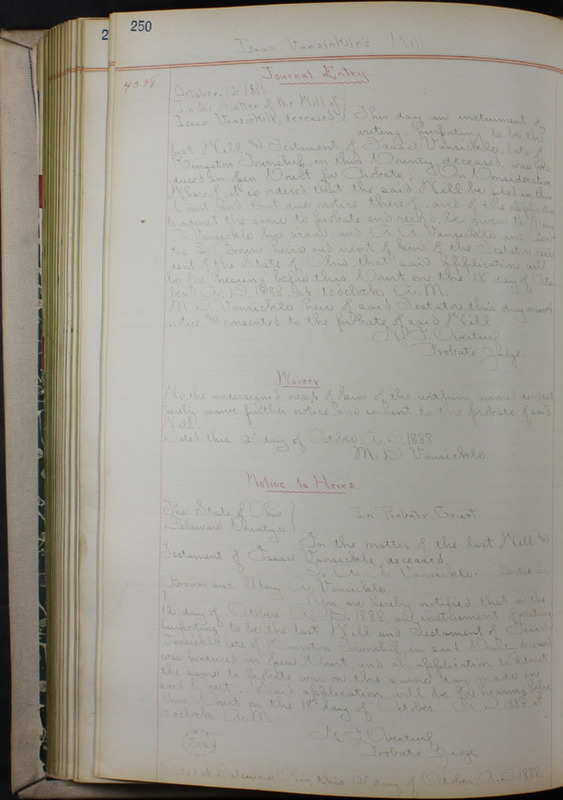 2
250
Isaac Vansickle's Will
Journal Entry
4398
October 12" 1888
In the Matter of the Will of
Isaac Vansickle, deceased. This day an instrument of
writing, purporting to be the
last Will & Testament of Isaac Vansickle, late of
Kingston Township, in this County, deceased, was
duced in open Court for Probate. On Consideration
whereof, it is ordered that the said Will be filed in this
Court and that due notice thereof, and of the application
to admit the same to probate and record, be given to
Vansickle his and A. A. Vansickle and
Brown heirs and next of kin of the Testator,
dent of the State of Ohio that said application will
be for hearing before this Court on the 18" day of Octo-
ber A.D. 1888, at 10 o'clock A.M.
M. D. Vansickle heir of said Testator this day waived
notice & consented to the probate of said Will
Overturf
Probate Judge
Waiver
We, the undersigned, next of kin of the within named deceased
hereby waive further notice and consent to the probate of said
Will.
Dated this 12" day of October A.D. 1888
M. D. Vansickle
Notice to Heirs
The State of Ohio
Delaware County ss In Probate Court.
In the matter of the last Will &
Testament of Isaac Vansickle, deceased.
To A. A. Vansickle.
Brown and Mary Vansickle
You are hereby notified that on the
12" day of October A.D. 1888, an instrument of writing
purporting to be the last Will and Testament of Isaac
Vansickle late of Kingston Township in said County deceased
was produced in open Court, and an application to admit
the same to probate was on the same day made in
said Court. Said application will be for hearing before
this Court on the 18" day of October A.D. 1888 at
o'clock A.M.
Overturf
Seal
Probate Judge
Dated at Delaware this 12" day of October, A.D. 1888.